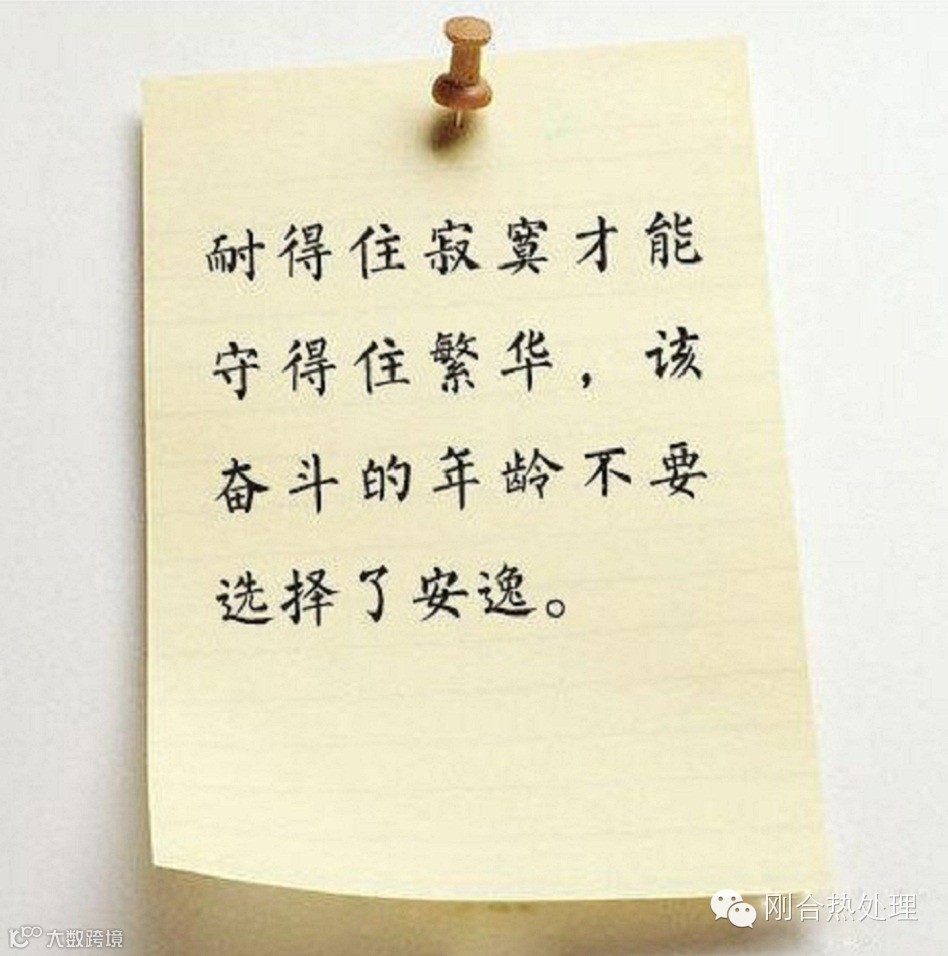 耐得住寂寞才能
守得住繁华，该
奋斗的年龄不要
选择了安逸。
刚合热处理
大数跨境